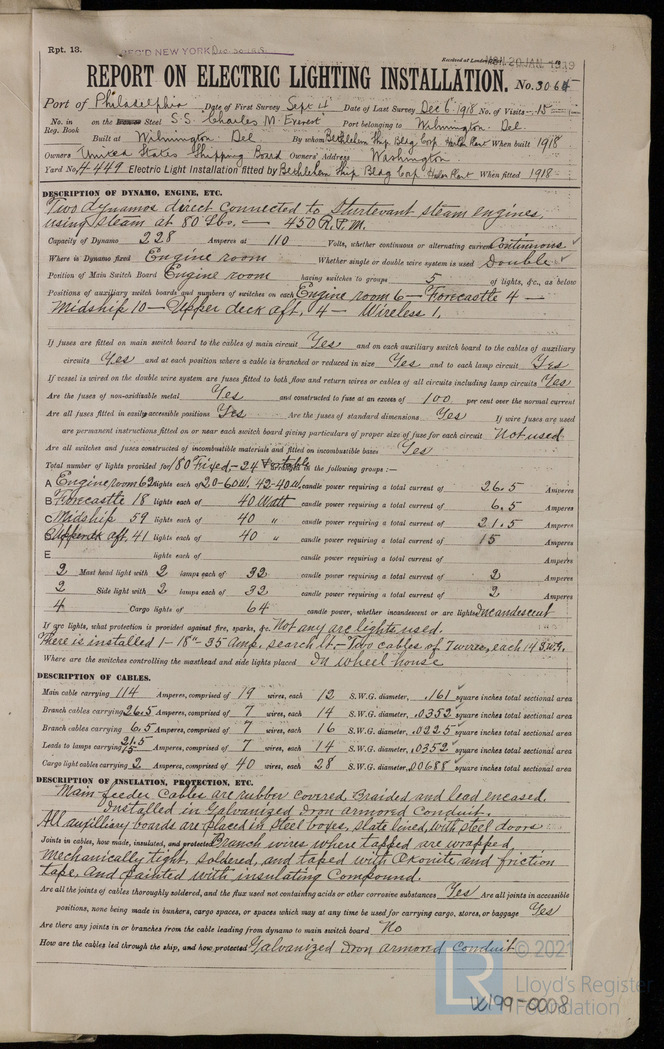 Rpt. 13.
REC'D NEW YORK Dec
Received at London 20 JAN 1919
REPORT ON ELECTRIC LIGHTING INSTALLATION. No. 3064
Port of Philadelphia Date of First Survey Sept 4 Date of Last Survey Dec 6 1918 No. of Visits 15
No. in Reg. Book on the Steel S.S. Charles M. Everest Port belonging to Wilmington Del.
Built at Wilmington Del By whom Bethlehem Ship Bldg Corp Harlan Plant When built 1918
Owners United States Shipping Board Owners' Address Washington
Yard No. 4449 Electric Light Installation fitted by Bethlehem Ship Bldg Corp Harlan Plant When fitted 1918
DESCRIPTION OF DYNAMO, ENGINE, ETC.
Two dynamos direct connected to Sturtevant steam engines,
using steam at 80 Lbs. — 450 R.P.M.
Capacity of Dynamo 228 Amperes at 110 Volts, whether continuous or alternating current Continuous
Where is Dynamo fixed Engine room Whether single or double wire system is used Double
Position of Main Switch Board Engine room having switches to groups 5 of lights, &c., as below
Positions of auxiliary switch boards and numbers of switches on each Engine room 6 — Forecastle 4 —
Midship 10 — Upper deck aft, 4 — Wireless 1.
If fuses are fitted on main switch board to the cables of main circuit Yes and on each auxiliary switch board to the cables of auxiliary
circuits Yes and at each position where a cable is branched or reduced in size Yes and to each lamp circuit Yes
If vessel is wired on the double wire system are fuses fitted to both flow and return wires or cables of all circuits including lamp circuits Yes
Are the fuses of non-oxidizable metal Yes and constructed to fuse at an excess of 100 per cent over the normal current
Are all fuses fitted in easily accessible positions Yes Are the fuses of standard dimensions Yes If wire fuses are used
are permanent instructions fitted on or near each switch board giving particulars of proper size of fuse for each circuit Not used
Are all switches and fuses constructed of incombustible materials and fitted on incombustible bases Yes
Total number of lights provided for 180 Fixed — 24 Portable in the following groups :—
A Engine room 62 lights each of 20-60W, 42-40W candle power requiring a total current of 26.5 Amperes
B Forecastle 18 lights each of 40 Watt candle power requiring a total current of 6.5 Amperes
C Midship 59 lights each of 40 " candle power requiring a total current of 21.5 Amperes
D Upper dk aft, 41 lights each of 40 " candle power requiring a total current of 15 Amperes
E lights each of candle power requiring a total current of Amperes
2 Mast head light with 2 lamps each of 32 candle power requiring a total current of 2 Amperes
2 Side light with 2 lamps each of 32 candle power requiring a total current of 2 Amperes
4 Cargo lights of 64 candle power, whether incandescent or arc lights Incandescent
If arc lights, what protection is provided against fire, sparks, &c. Not any arc lights used.
There is installed 1 - 18" - 35 Amp. search lt. — Two cables of 7 wires, each 14 S.W.G.
Where are the switches controlling the masthead and side lights placed In wheel house
DESCRIPTION OF CABLES.
Main cable carrying 114 Amperes, comprised of 19 wires, each 12 S.W.G. diameter, .161 square inches total sectional area
Branch cables carrying 26.5 Amperes, comprised of 7 wires, each 14 S.W.G. diameter, .0352 square inches total sectional area
Branch cables carrying 6.5 Amperes, comprised of 7 wires, each 16 S.W.G. diameter, .0225 square inches total sectional area
Leads to lamps carrying 21.5 15 Amperes, comprised of 7 wires, each 14 S.W.G. diameter, .0352 square inches total sectional area
Cargo light cables carrying 2 Amperes, comprised of 40 wires, each 28 S.W.G. diameter, .00688 square inches total sectional area
DESCRIPTION OF INSULATION, PROTECTION, ETC.
Main feeder cables are rubber covered Braided and lead encased,
Installed in Galvanized Iron armored Conduit.
All auxilliary boards are placed in steel boxes, slate lined, with steel doors
Joints in cables, how made, insulated, and protected Branch wires where tapped are wrapped,
mechanically tight, soldered, and taped with Okonite and friction
tape, and painted with insulating Compound.
Are all the joints of cables thoroughly soldered, and the flux used not containing acids or other corrosive substances Yes Are all joints in accessible
positions, none being made in bunkers, cargo spaces, or spaces which may at any time be used for carrying cargo, stores, or baggage Yes
Are there any joints in or branches from the cable leading from dynamo to main switch board No
How are the cables led through the ship, and how protected Galvanized Iron armored Conduit
© 2021
LR
Lloyd's Register
Foundation
W199-0008